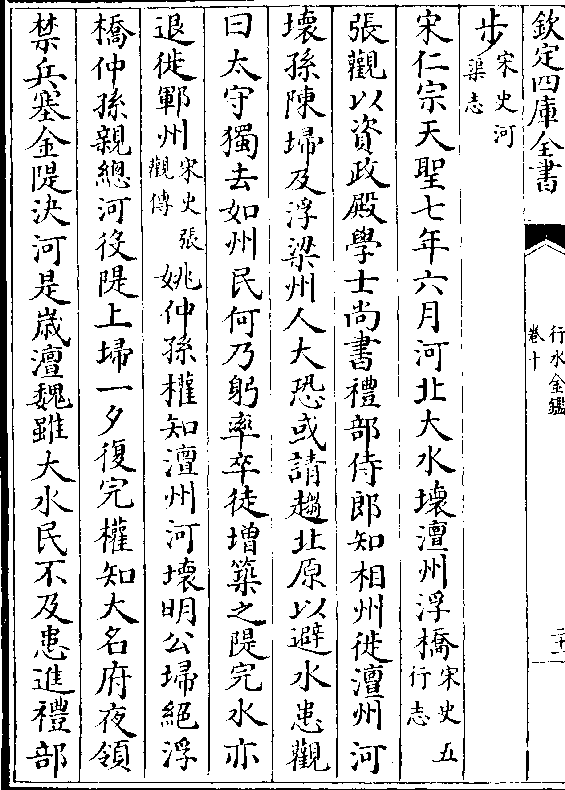 欽定四庫全書
行水金鑑
卷十
二十一
步宋史河渠志
宋仁宗天聖七年六月河北大水壞澶州浮橋宋史五行志
張觀以資政殿學士尚書禮部侍郎知相州徙澶州河
壞孫陳埽及浮梁州人大恐或請趨北原以避水患觀
曰太守獨去如州民何乃躬率卒徒增築之隄完水亦
退徙鄆州宋史張觀傳 姚仲孫權知澶州河壞明公埽絕浮
橋仲孫親總河役隄上埽一夕復完權知大名府夜領
禁兵塞金隄決河是嵗澶魏雖大水民不及患進禮部